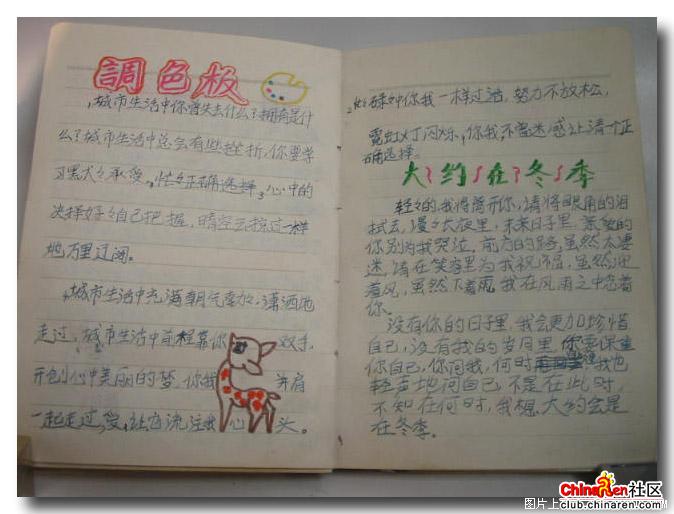 調色板
1,城市生活中你曾失去什么?拥有是什
么?城市生活中总会有些挫折,你要学
习默默承受,忙忙正确选择,心中的
决择好好自己把握,晴空云掠过一样
地万里辽阔。
城市生活中充满朝气,潇洒地
走过,城市生活中前程靠你双手
开创心中美丽的梦,你我并肩
一起走过,爱,让它流注我心头。
2,忙碌中你我一样过活,努力不放松,
霓虹灯闪烁,你我不曾迷惑认清了正
确选择。
大约在冬季
轻轻的我将离开你,请将眼角的泪
拭去,漫漫长夜里,未来日子里,亲爱的
你别为我哭泣。前方的路虽然太凄
迷,请在笑容里为我祝福,虽然迎
着风,虽然下着雨,我在风雨之中念着
你。
没有你的日子里,我会更加珍惜
自己,没有我的岁月里,你要保重
你自己,你问我,何时我也
轻声地问自己,不是在此时,
不知在何时,我想,大约会是
在冬季。
ChinaRen社区
图片上
club.chinaren.com